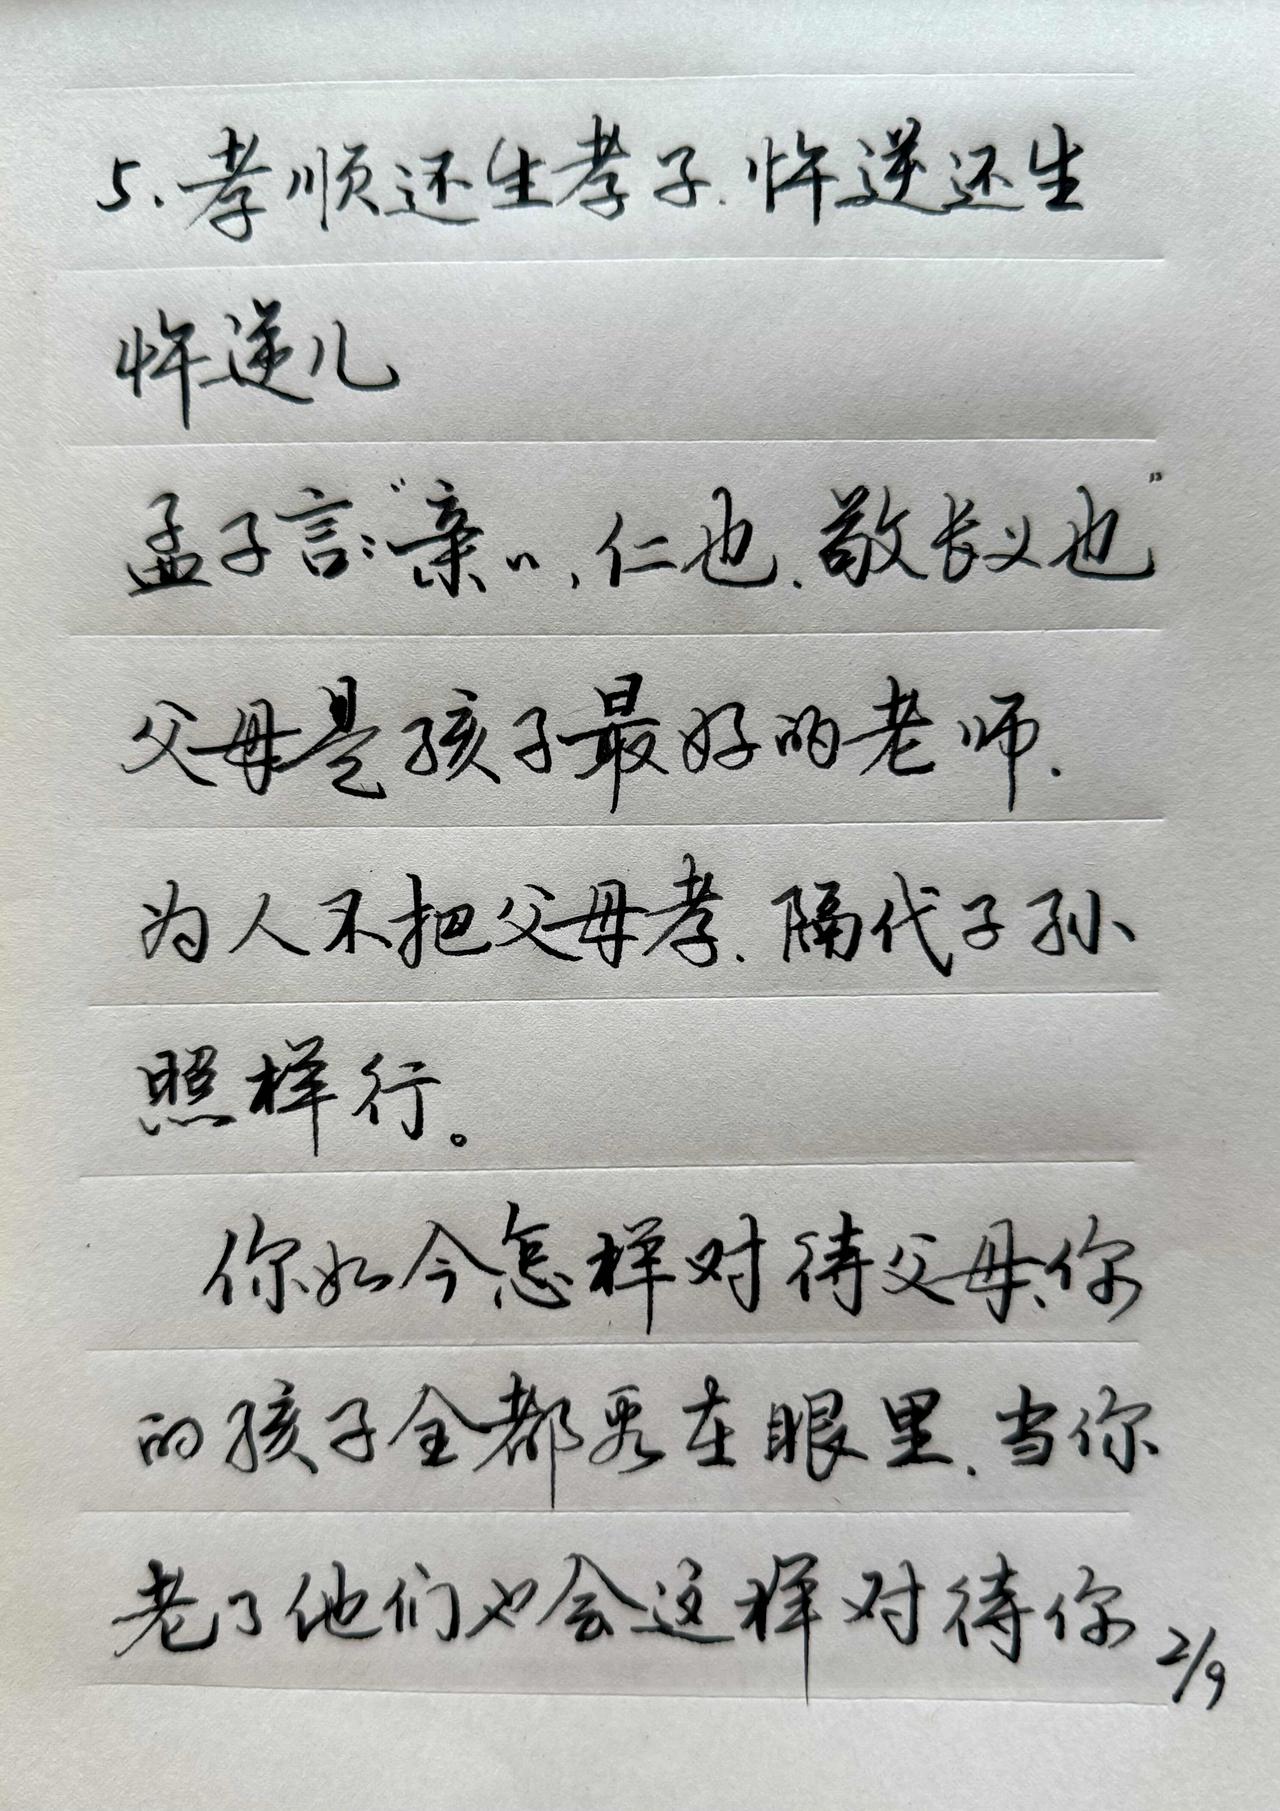 5、孝顺还生孝子、忤逆还生
忤逆儿
孟子言:“亲〃,仁也、敬长义也”
父母是孩子最好的老师、
为人不把父母孝、隔代子孙
照样行。
你如今怎样对待父母、你
的孩子全都看在眼里、当你
老了他们也会这样对待你
2/9